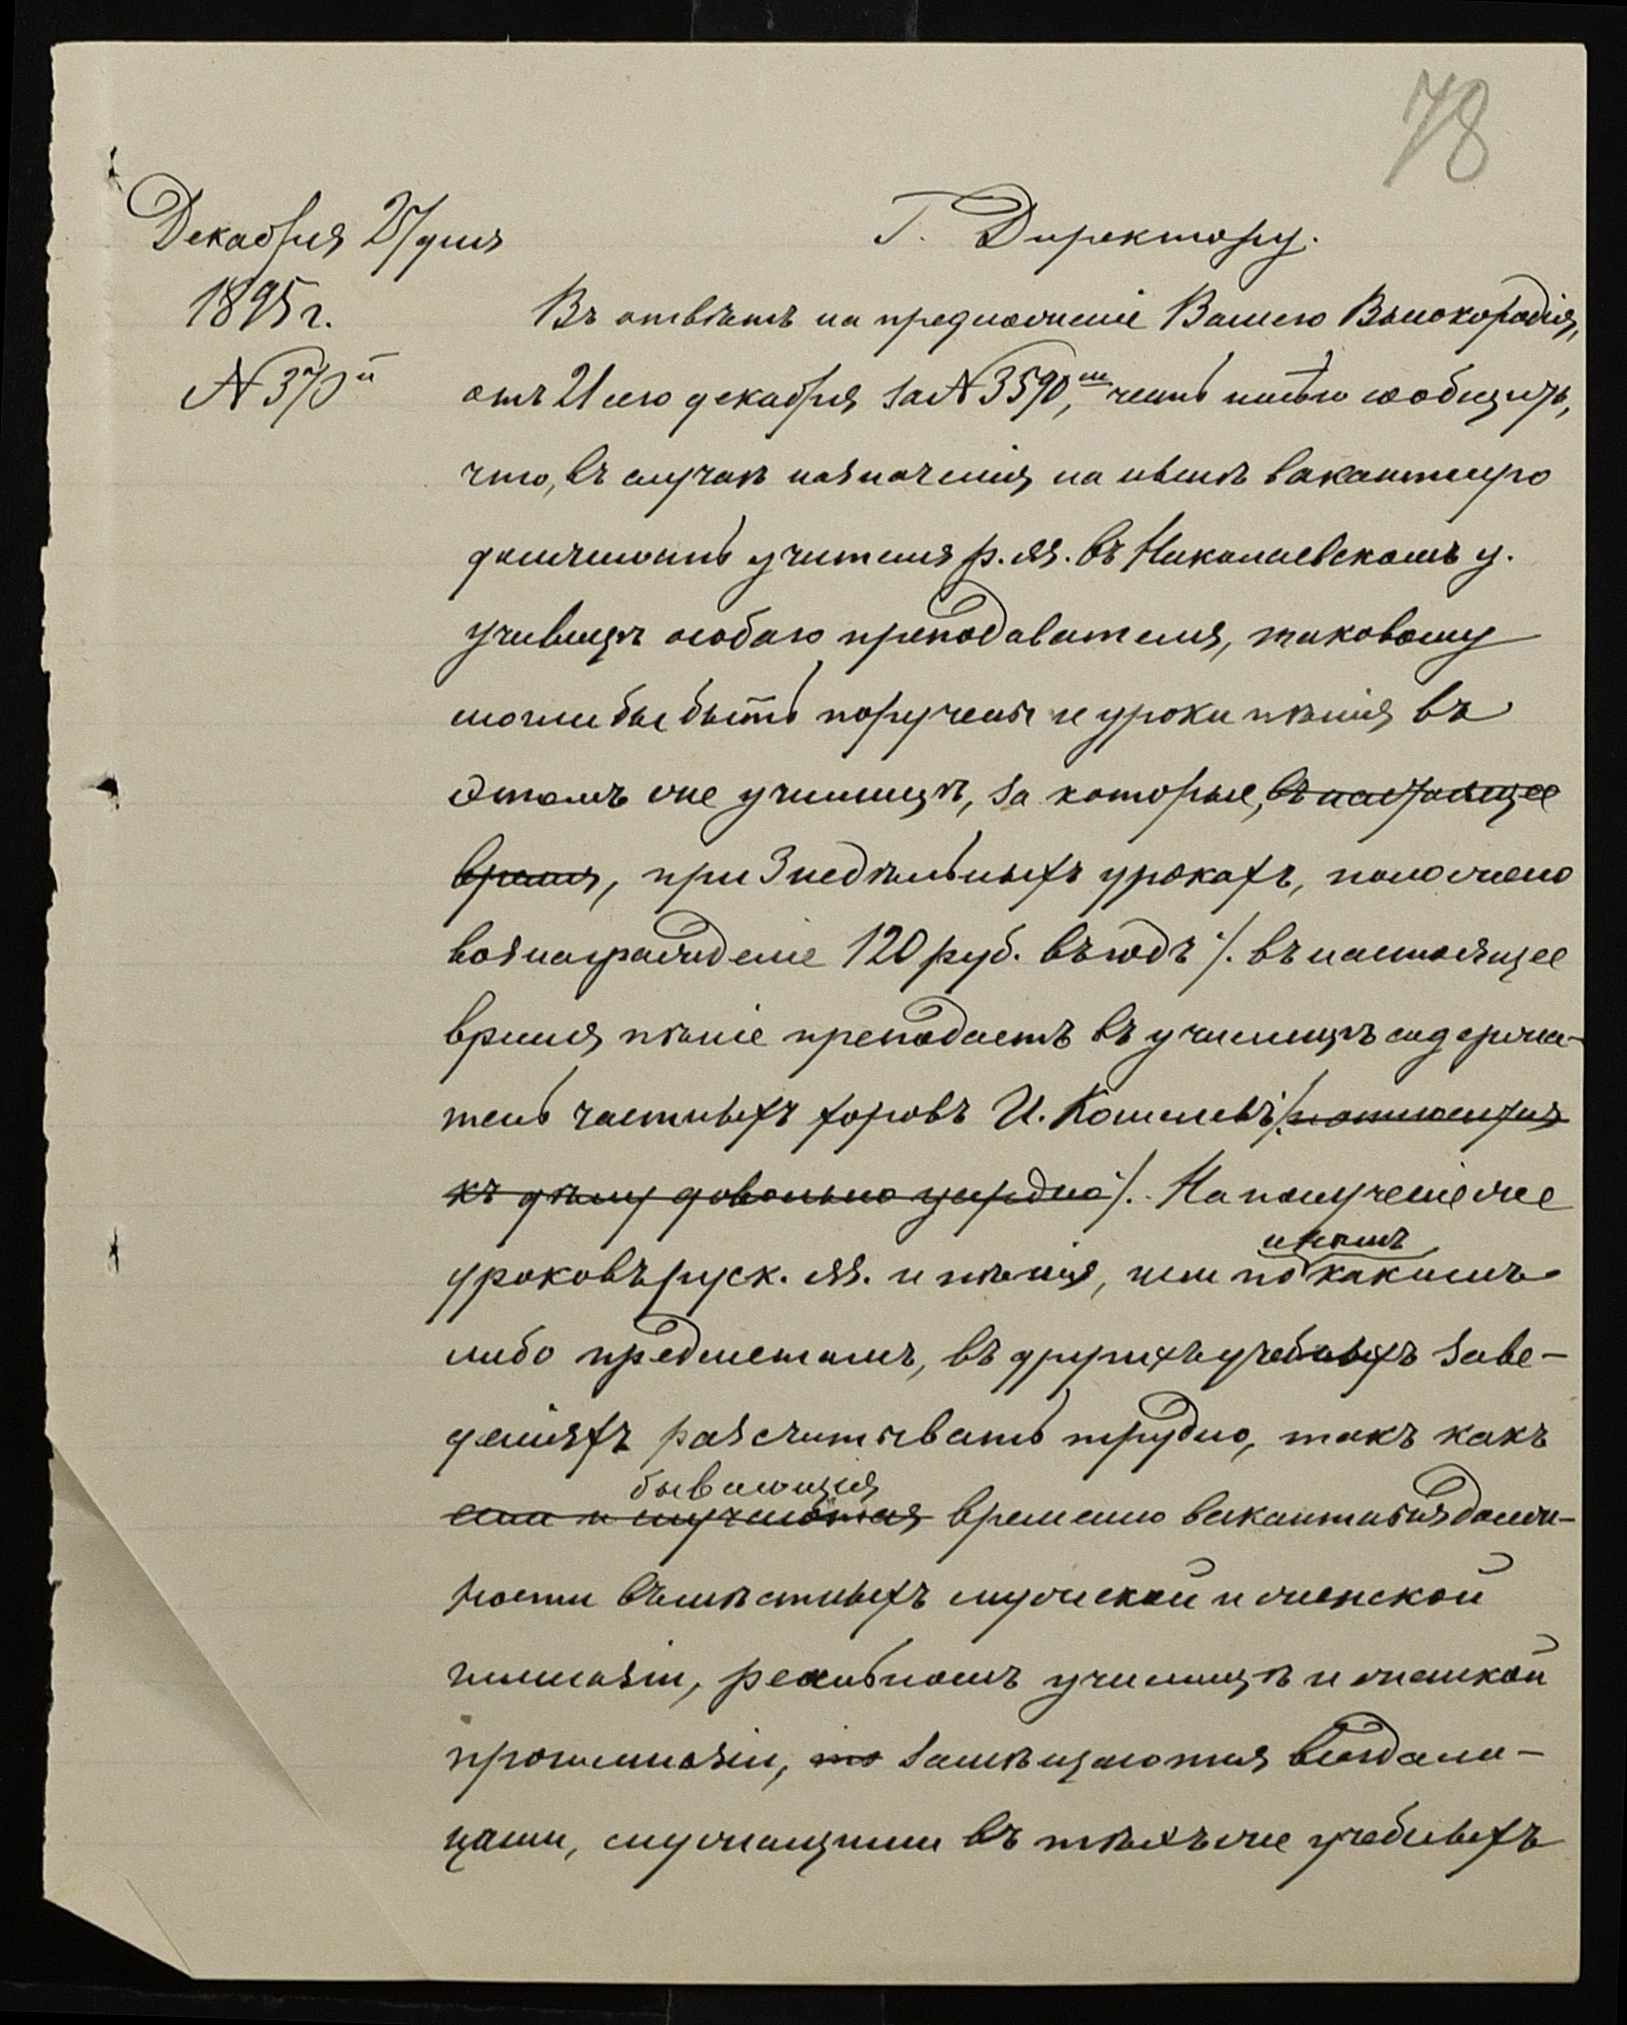 78
Декабря 27 дня
1895 г.
№ 370й
Г. Директору.
Въ отвѣтъ на предложеніе Вашего Высокородія,
отъ 21 сего декабря за № 3590, честь имѣю сообщить,
что, въ случаѣ назначенія на нынѣ вакантную
должность учителя р. яз. въ Николаевскомъ у.
училищѣ особаго преподавателя, таковому
могли бы быть поручены и уроки пѣнія въ
этомъ же училищѣ, за которые, въ настоящее
время, при 3 недѣльныхъ урокахъ, положено
вознагражденіе 120 руб. въ годъ /. въ настоящее
время пѣніе преподаетъ въ училищѣ содержа-
тель частныхъ хоровъ И. Кошелевъ, относится
къ дѣлу довольно усердно /. На полученіе же
уроковъ русск. яз. и пѣнія, или по инымъ какимъ
либо предметамъ, въ другихъ учебныхъ заве-
деніяхъ разсчитывать трудно, такъ какъ
если и случаются бывающія временно вакантныя долж-
ности въ мѣстныхъ мужской и женской
гимназіи, реальномъ училищѣ и женской
прогимназіи, то замѣщаются людьми
, служащими въ тѣхъ же учебныхъ